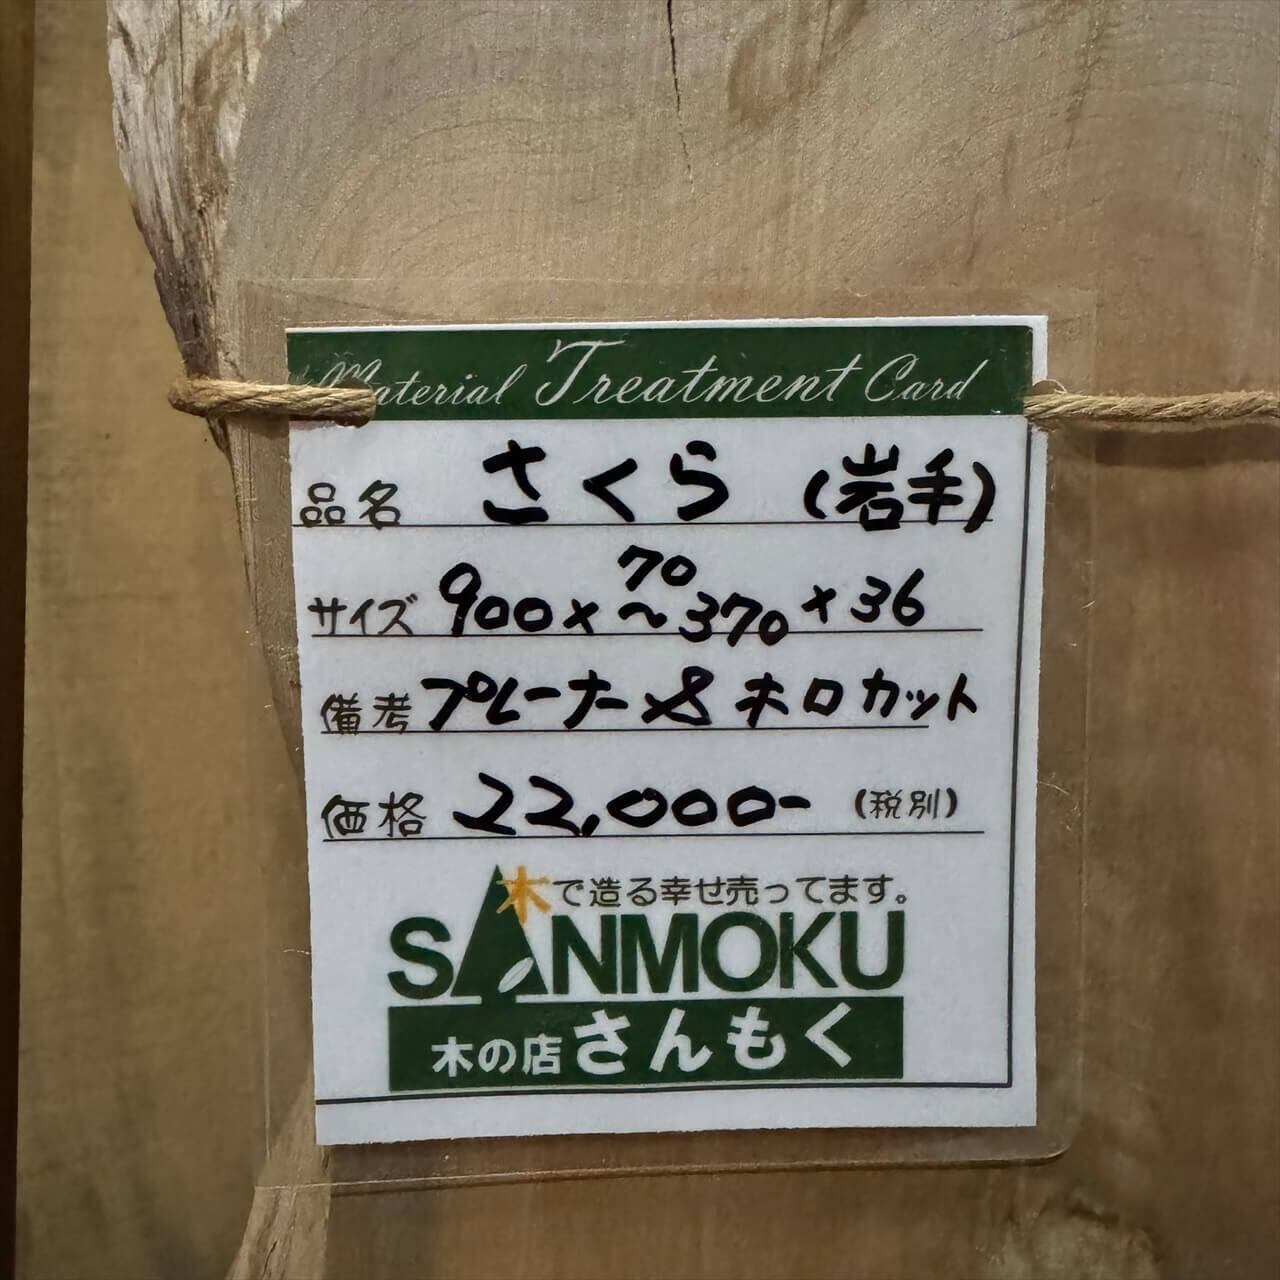 Material Treatment Card
品名 さくら (岩手)
サイズ 900×70～370×36
備考 プレーナー&ホロカット
価格 22,000- (税別)
木で造る幸せ売ってます。
SANMOKU
木の店さんもく